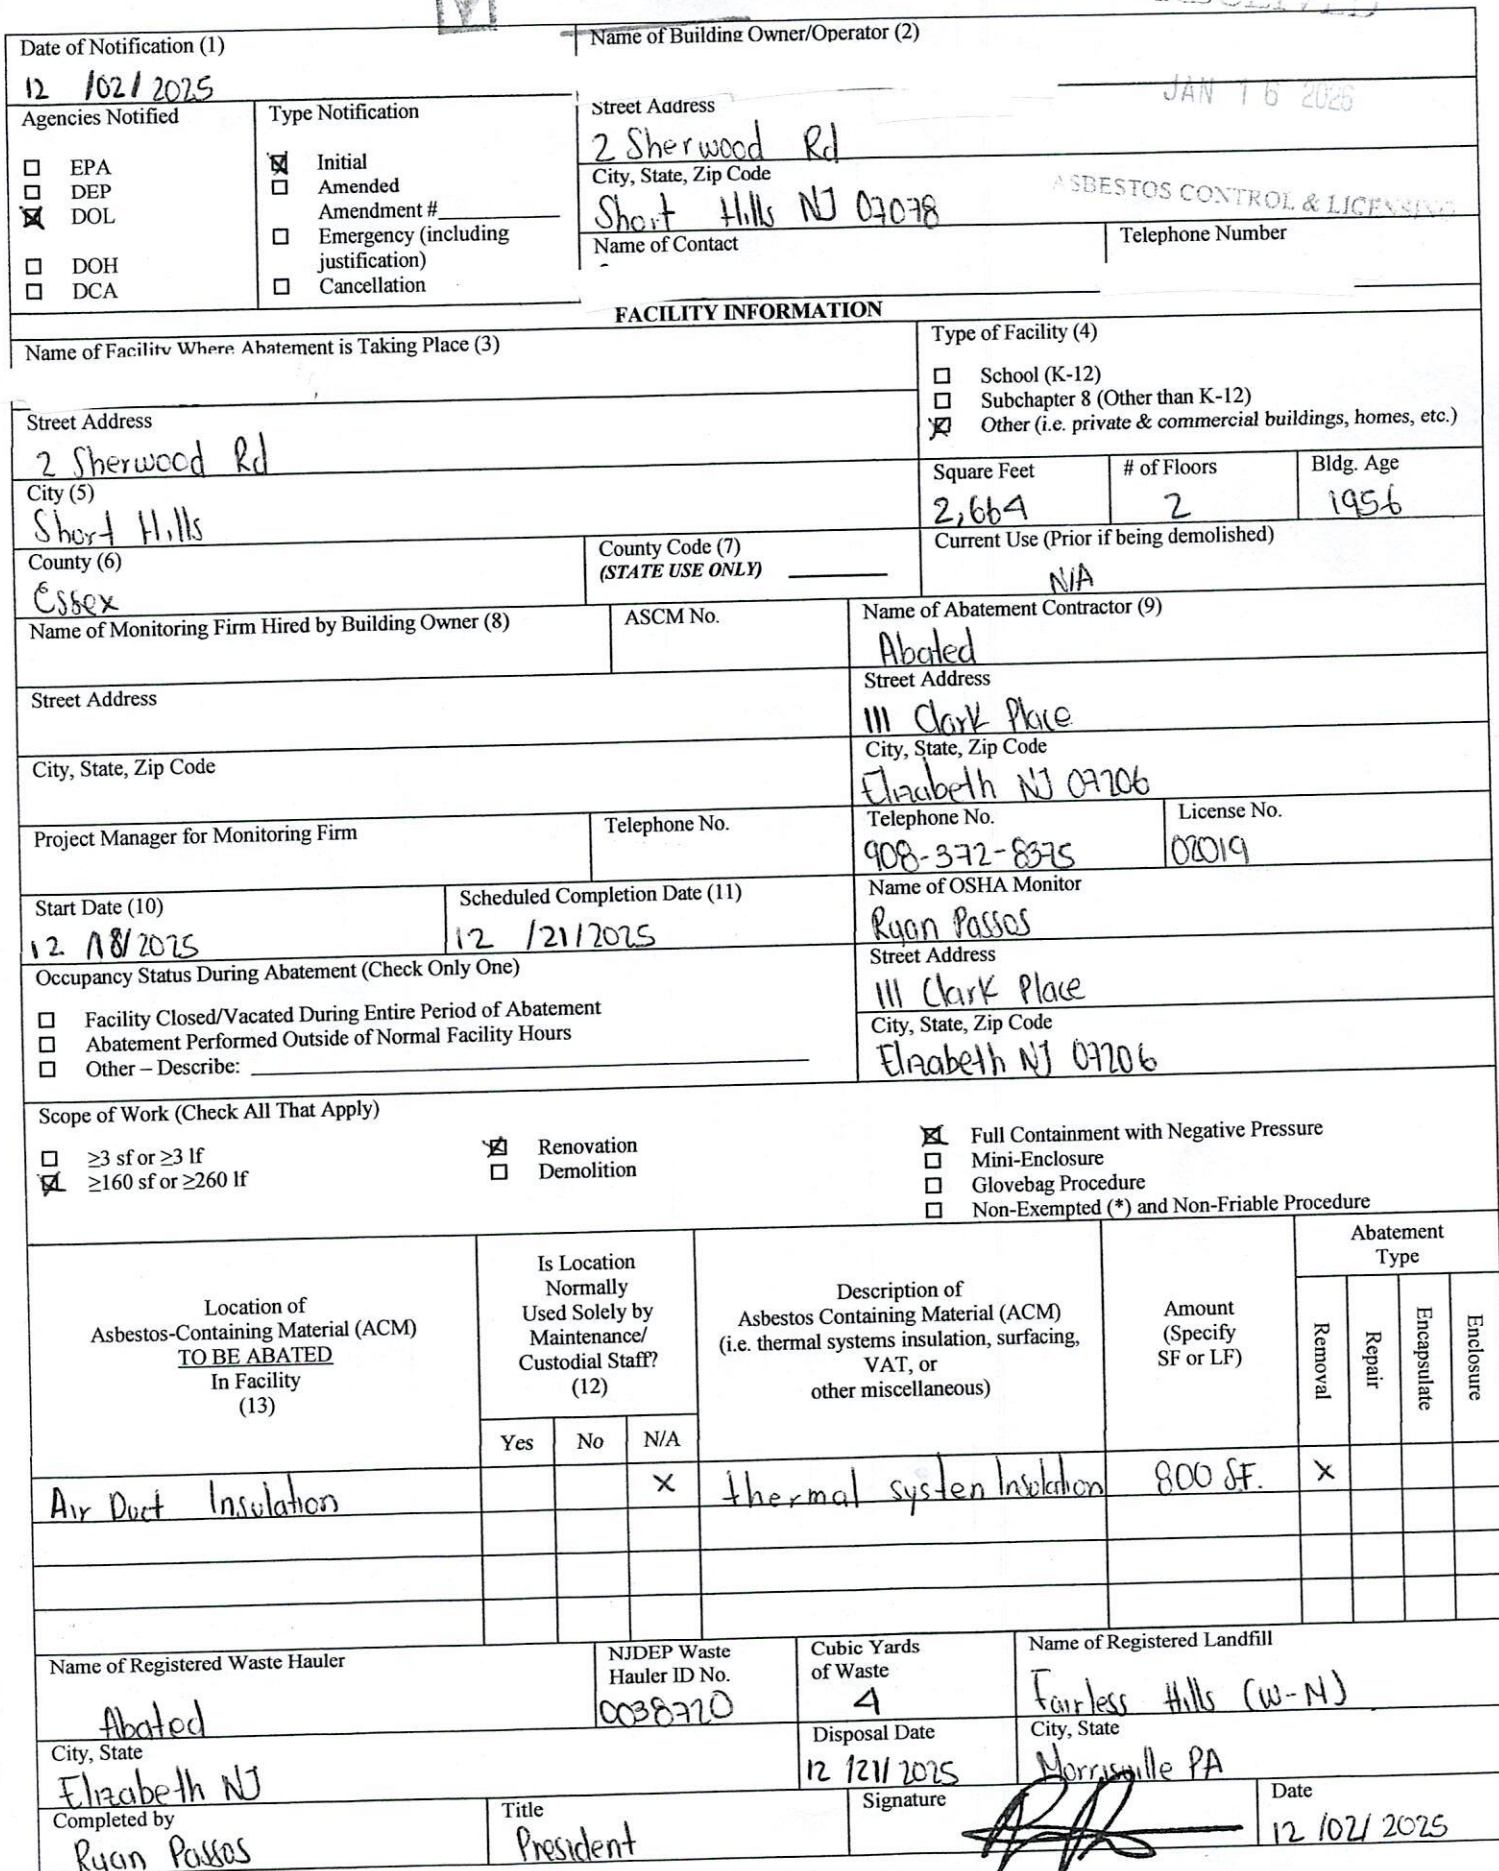 Date of Notification (1)
12 /02/2025
Name of Building Owner/Operator (2)
JAN 16 2026
Agencies Notified
EPA
DEP
DOL
DOH
DCA
Type Notification
Initial
Amended
Amendment #
Emergency (including
justification)
Cancellation
Street Address
2 Sherwood Rd
City, State, Zip Code
Short Hills NJ 07078
ASBESTOS CONTROL & LICENSING
Name of Contact
Telephone Number
FACILITY INFORMATION
Name of Facility Where Abatement is Taking Place (3)
Type of Facility (4)
School (K-12)
Subchapter 8 (Other than K-12)
Other (i.e. private & commercial buildings, homes, etc.)
Street Address
2 Sherwood Rd
Square Feet
2,664
# of Floors
2
Bldg. Age
1956
City (5)
Short Hills
County (6)
Essex
County Code (7)
(STATE USE ONLY)
Current Use (Prior if being demolished)
N/A
Name of Monitoring Firm Hired by Building Owner (8)
ASCM No.
Name of Abatement Contractor (9)
Abated
Street Address
Street Address
111 Clark Place
City, State, Zip Code
City, State, Zip Code
Elizabeth NJ 07206
Project Manager for Monitoring Firm
Telephone No.
Telephone No.
908-372-8375
License No.
02019
Start Date (10)
12 /18/2025
Scheduled Completion Date (11)
12 /21/2025
Name of OSHA Monitor
Ryan Passos
Occupancy Status During Abatement (Check Only One)
Facility Closed/Vacated During Entire Period of Abatement
Abatement Performed Outside of Normal Facility Hours
Other – Describe:
Street Address
111 Clark Place
City, State, Zip Code
Elizabeth NJ 07206
Scope of Work (Check All That Apply)
≥3 sf or ≥3 lf
≥160 sf or ≥260 lf
Renovation
Demolition
Full Containment with Negative Pressure
Mini-Enclosure
Glovebag Procedure
Non-Exempted (*) and Non-Friable Procedure
Location of
Asbestos-Containing Material (ACM)
TO BE ABATED
In Facility
(13)
Is Location
Normally
Used Solely by
Maintenance/
Custodial Staff?
(12)
Yes No N/A
Description of
Asbestos Containing Material (ACM)
(i.e. thermal systems insulation, surfacing,
VAT, or
other miscellaneous)
Amount
(Specify
SF or LF)
Abatement
Type
Removal
Repair
Encapsulate
Enclosure
Air Duct Insulation X thermal systen Insulation 800 S.F. X
Name of Registered Waste Hauler
Abated
NJDEP Waste
Hauler ID No.
0038720
Cubic Yards
of Waste
4
Name of Registered Landfill
Fairless Hills (W-M)
City, State
Elizabeth NJ
Disposal Date
12 /21/ 2025
City, State
Morrisville PA
Completed by
Ryan Passos
Title
President
Signature
Date
12 /02/ 2025